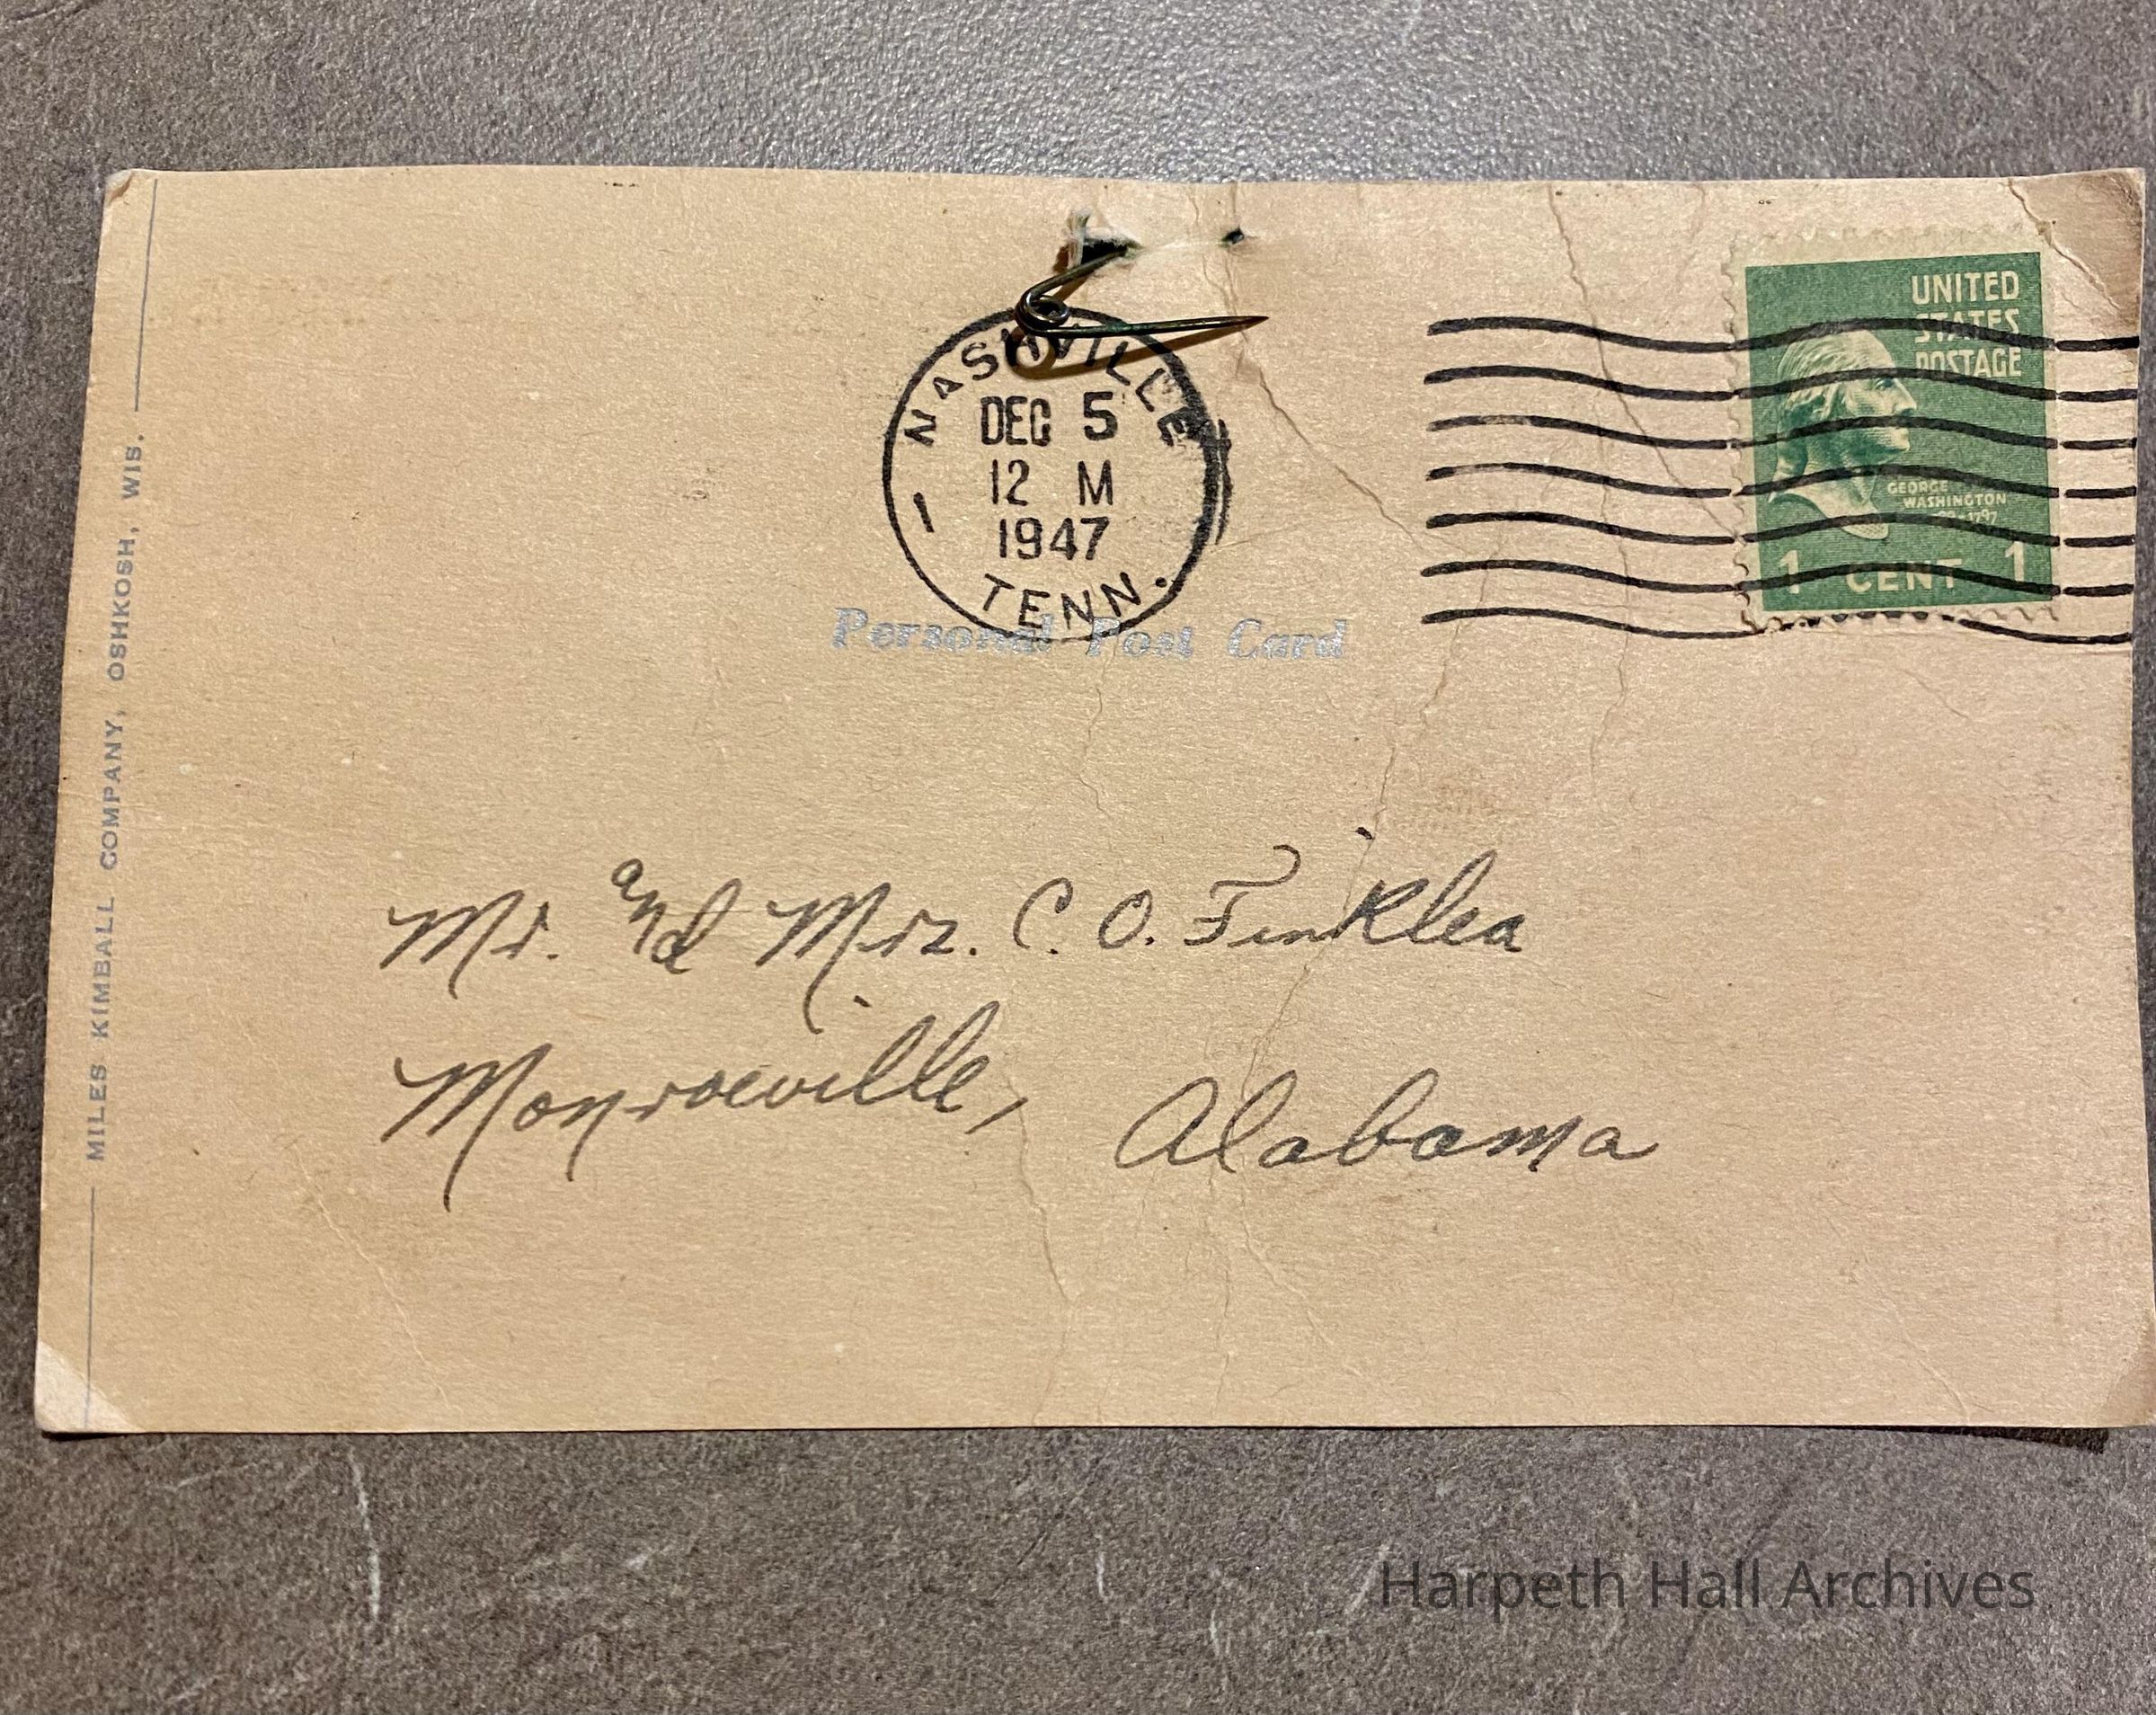 NASHVILLE
DEC 5
12 M
1947
TENN.
1
UNITED
STATES
POSTAGE
GEORGE
WASHINGTON
1797
1 CENT 1
Personal Post Card
MILES KIMBALL COMPANY, OSHKOSH, WIS.
Mr. and Mrs. C. O. Finklea
Monroeville, Alabama
Harpeth Hall Archives